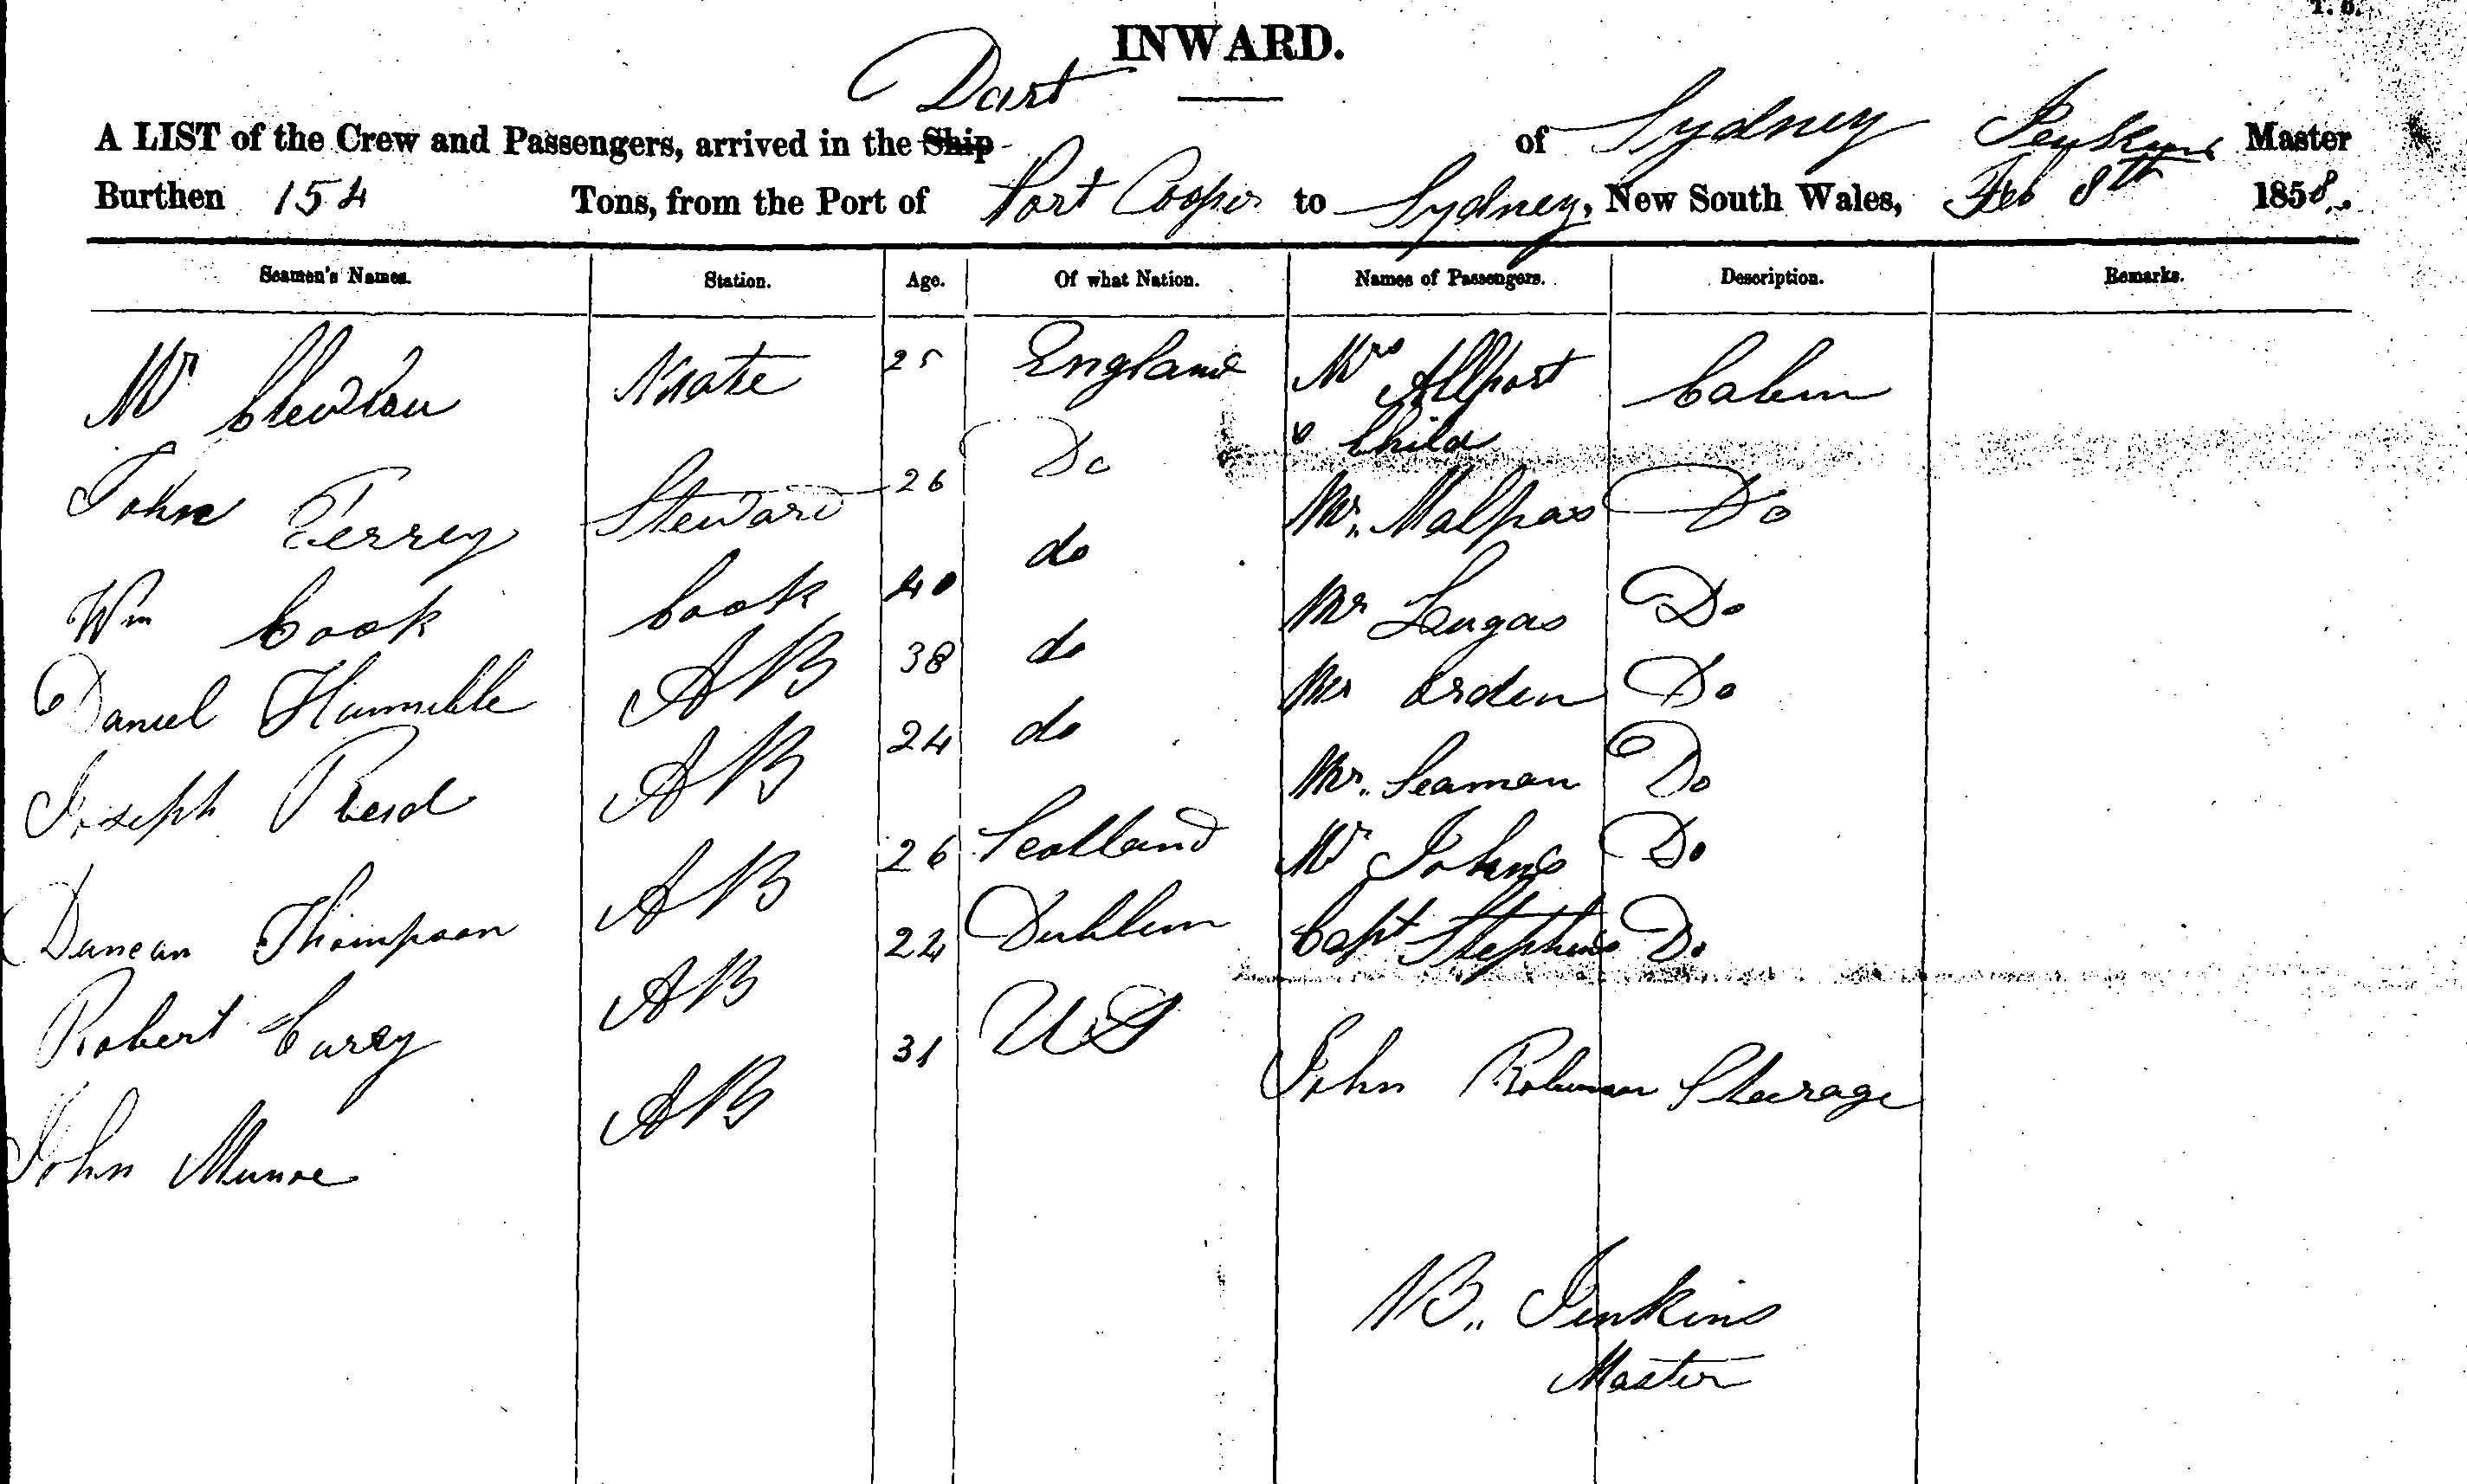 INWARD.
Dart
A LIST of the Crew and Passengers, arrived in the Ship of Sydney Master
Burthen 154 Tons, from the Port of Port Cooper to Sydney, New South Wales, Feb 8th 1858.
Seamen's Names. Station. Age. Of what Nation. Names of Passengers. Description. Remarks.
Mr Mate 25 England Mrs Allport Cabin
& Child
John Perrey Steward 26 Do Mr. Malpas Do
Wm Cook Cook 40 do Mr Do
Daniel Humible AB 38 do Mr Do
Joseph Reid AB 24 do Mr. Seaman Do
Duncan Thompson AB 26 Scotland Mr Johns Do
Robert Curey AB 22 Dublin Capt Stephens Do
John Munro AB 31 US
John Robinson Steerage
Jenkins
Master